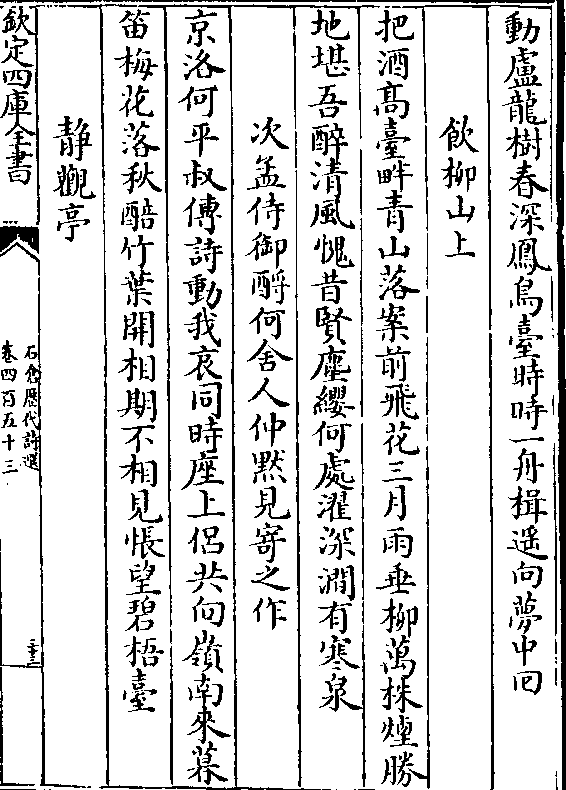 動盧龍樹春深鳳鳥臺時時一舟楫遥向夢中囘
飲柳山上
把酒髙臺畔青山落案前飛花三月雨垂柳萬株煙勝
地堪吾醉清風愧昔賢塵纓何處濯深澗有寒泉
次孟侍御酧何舍人仲黙見寄之作
京洛何平叔傳詩動我哀同時座上侣共向嶺南來暮
笛梅花落秋醅竹葉開相期不相見悵望碧梧臺
靜觀亭
欽定四庫全書
石倉歴代詩選
卷四百五十三
三十三